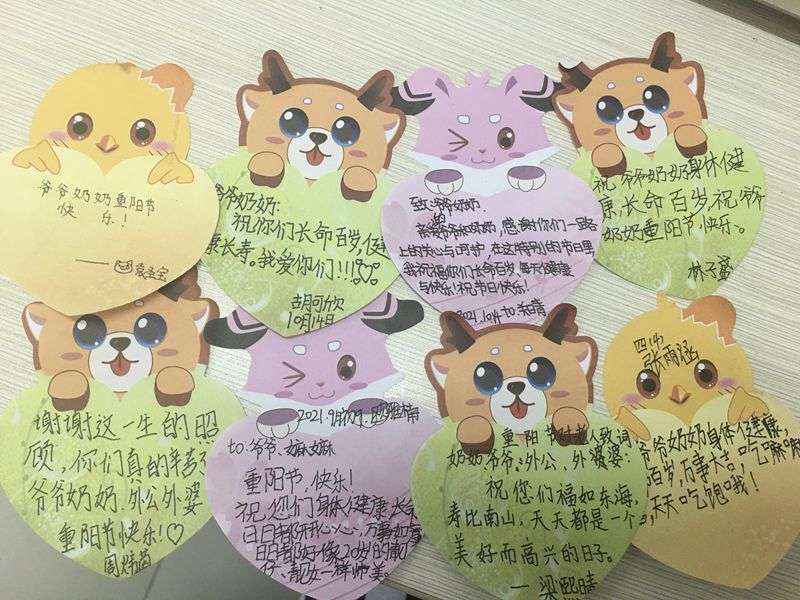 爷爷奶奶重阳节
快乐!
爷爷奶奶:
祝你们长命百岁,健
康长寿。我爱你们!!!
胡可欣
10月14日
致:爷爷奶奶
亲爱的爷爷和奶奶,感谢你们一路
上的关心与呵护,在这特别的节日里
我祝福你们长命百岁,每天健康
与快乐!祝节日快乐!
祝爷爷奶奶身体健
康,长命百岁,祝爷爷
奶奶重阳节快乐。
谢谢这一生的照
顾,你们真的辛苦了
爷爷奶奶.外公外婆
重阳节快乐!♡
to:爷爷、嫲嫲
重阳节.快乐!
祝你们身体健康,长命
日日都开开心心,万事如意
日日都好像20岁的靓
仔、靓女一样帅美。
重阳节对老人致词
奶奶爷爷:外公、外婆:
祝您们福如东海,
寿比南山,天天都是一个
美好而高兴的日子。
—梁熙晴
张雨涵
爷爷奶奶身体健康,
百岁,万事大吉,吃嘛嘛
,天天吃饱哦!